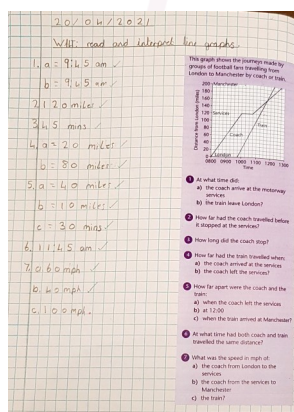 20/04/2021
WALT: read and interpret line graphs.
1. a = 9:45 am
b = 9:45 am
2. 120 miles
3. 45 mins
4. a = 20 miles
b = 80 miles
5. a = 40 miles
b = 10 miles
c = 30 mins
6. 11:45 am
7. a. 60 mph
b. 40 mph
c. 100 mph.
This graph shows the journeys made by
groups of football fans travelling from
London to Manchester by coach or train.
Distance from London (miles)
200
Manchester
180
160
140
120
Services
100
80
60
40
20
0
London
Coach
Train
0800 0900 1000 1100 1200 1300
Time
1 At what time did:
a) the coach arrive at the motorway
services
b) the train leave London?
2 How far had the coach travelled before
it stopped at the services?
3 How long did the coach stop?
4 How far had the train travelled when:
a) the coach arrived at the services
b) the coach left the services?
5 How far apart were the coach and the
train:
a) when the coach left the services
b) at 12:00
c) when the train arrived at Manchester?
6 At what time had both coach and train
travelled the same distance?
7 What was the speed in mph of:
a) the coach from London to the
services
b) the coach from the services to
Manchester
c) the train?